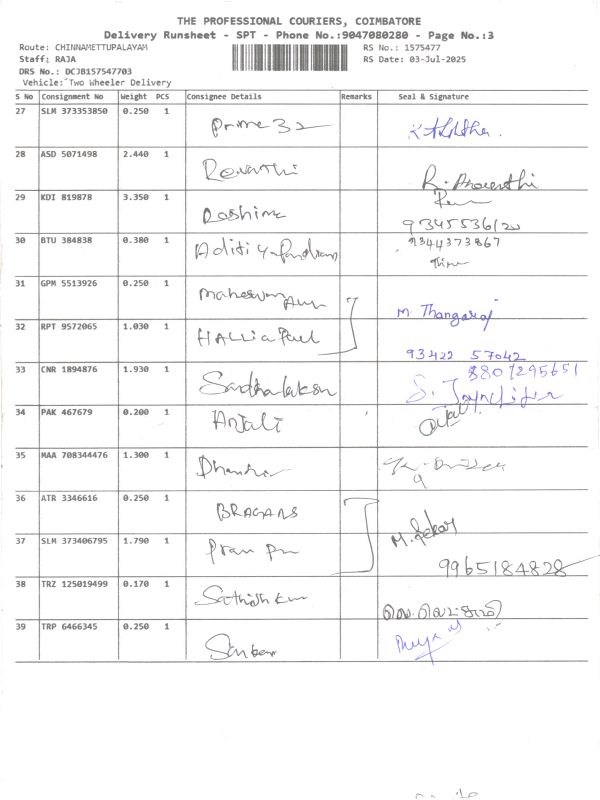 THE PROFESSIONAL COURIERS, COIMBATORE
Delivery Runsheet - SPT - Phone No.:9047080280 - Page No.:3
Route: CHINNAMETTUPALAYAM RS No.: 1575477
Staff: RAJA RS Date: 03-Jul-2025
DRS No.: DCJB157547703
Vehicle: Two Wheeler Delivery
S No Consignment No Weight PCS Consignee Details Remarks Seal & Signature
27 SLM 373353850 0.250 1 Prime 32
28 ASD 5071498 2.440 1 Revathi
29 KDI 819878 3.350 1 Dashima
9345536120
30 BTU 384838 0.380 1 Aditi 9344373867
31 GPM 5513926 0.250 1
M Thangaraj
32 RPT 9572065 1.030 1
93422 57042
33 CNR 1894876 1.930 1 8807295651
34 PAK 467679 0.200 1 Anjali
35 MAA 708344476 1.300 1
36 ATR 3346616 0.250 1 BRAGANS
M. Sekar
37 SLM 373406795 1.790 1
9965184828
38 TRZ 125019499 0.170 1
39 TRP 6466345 0.250 1